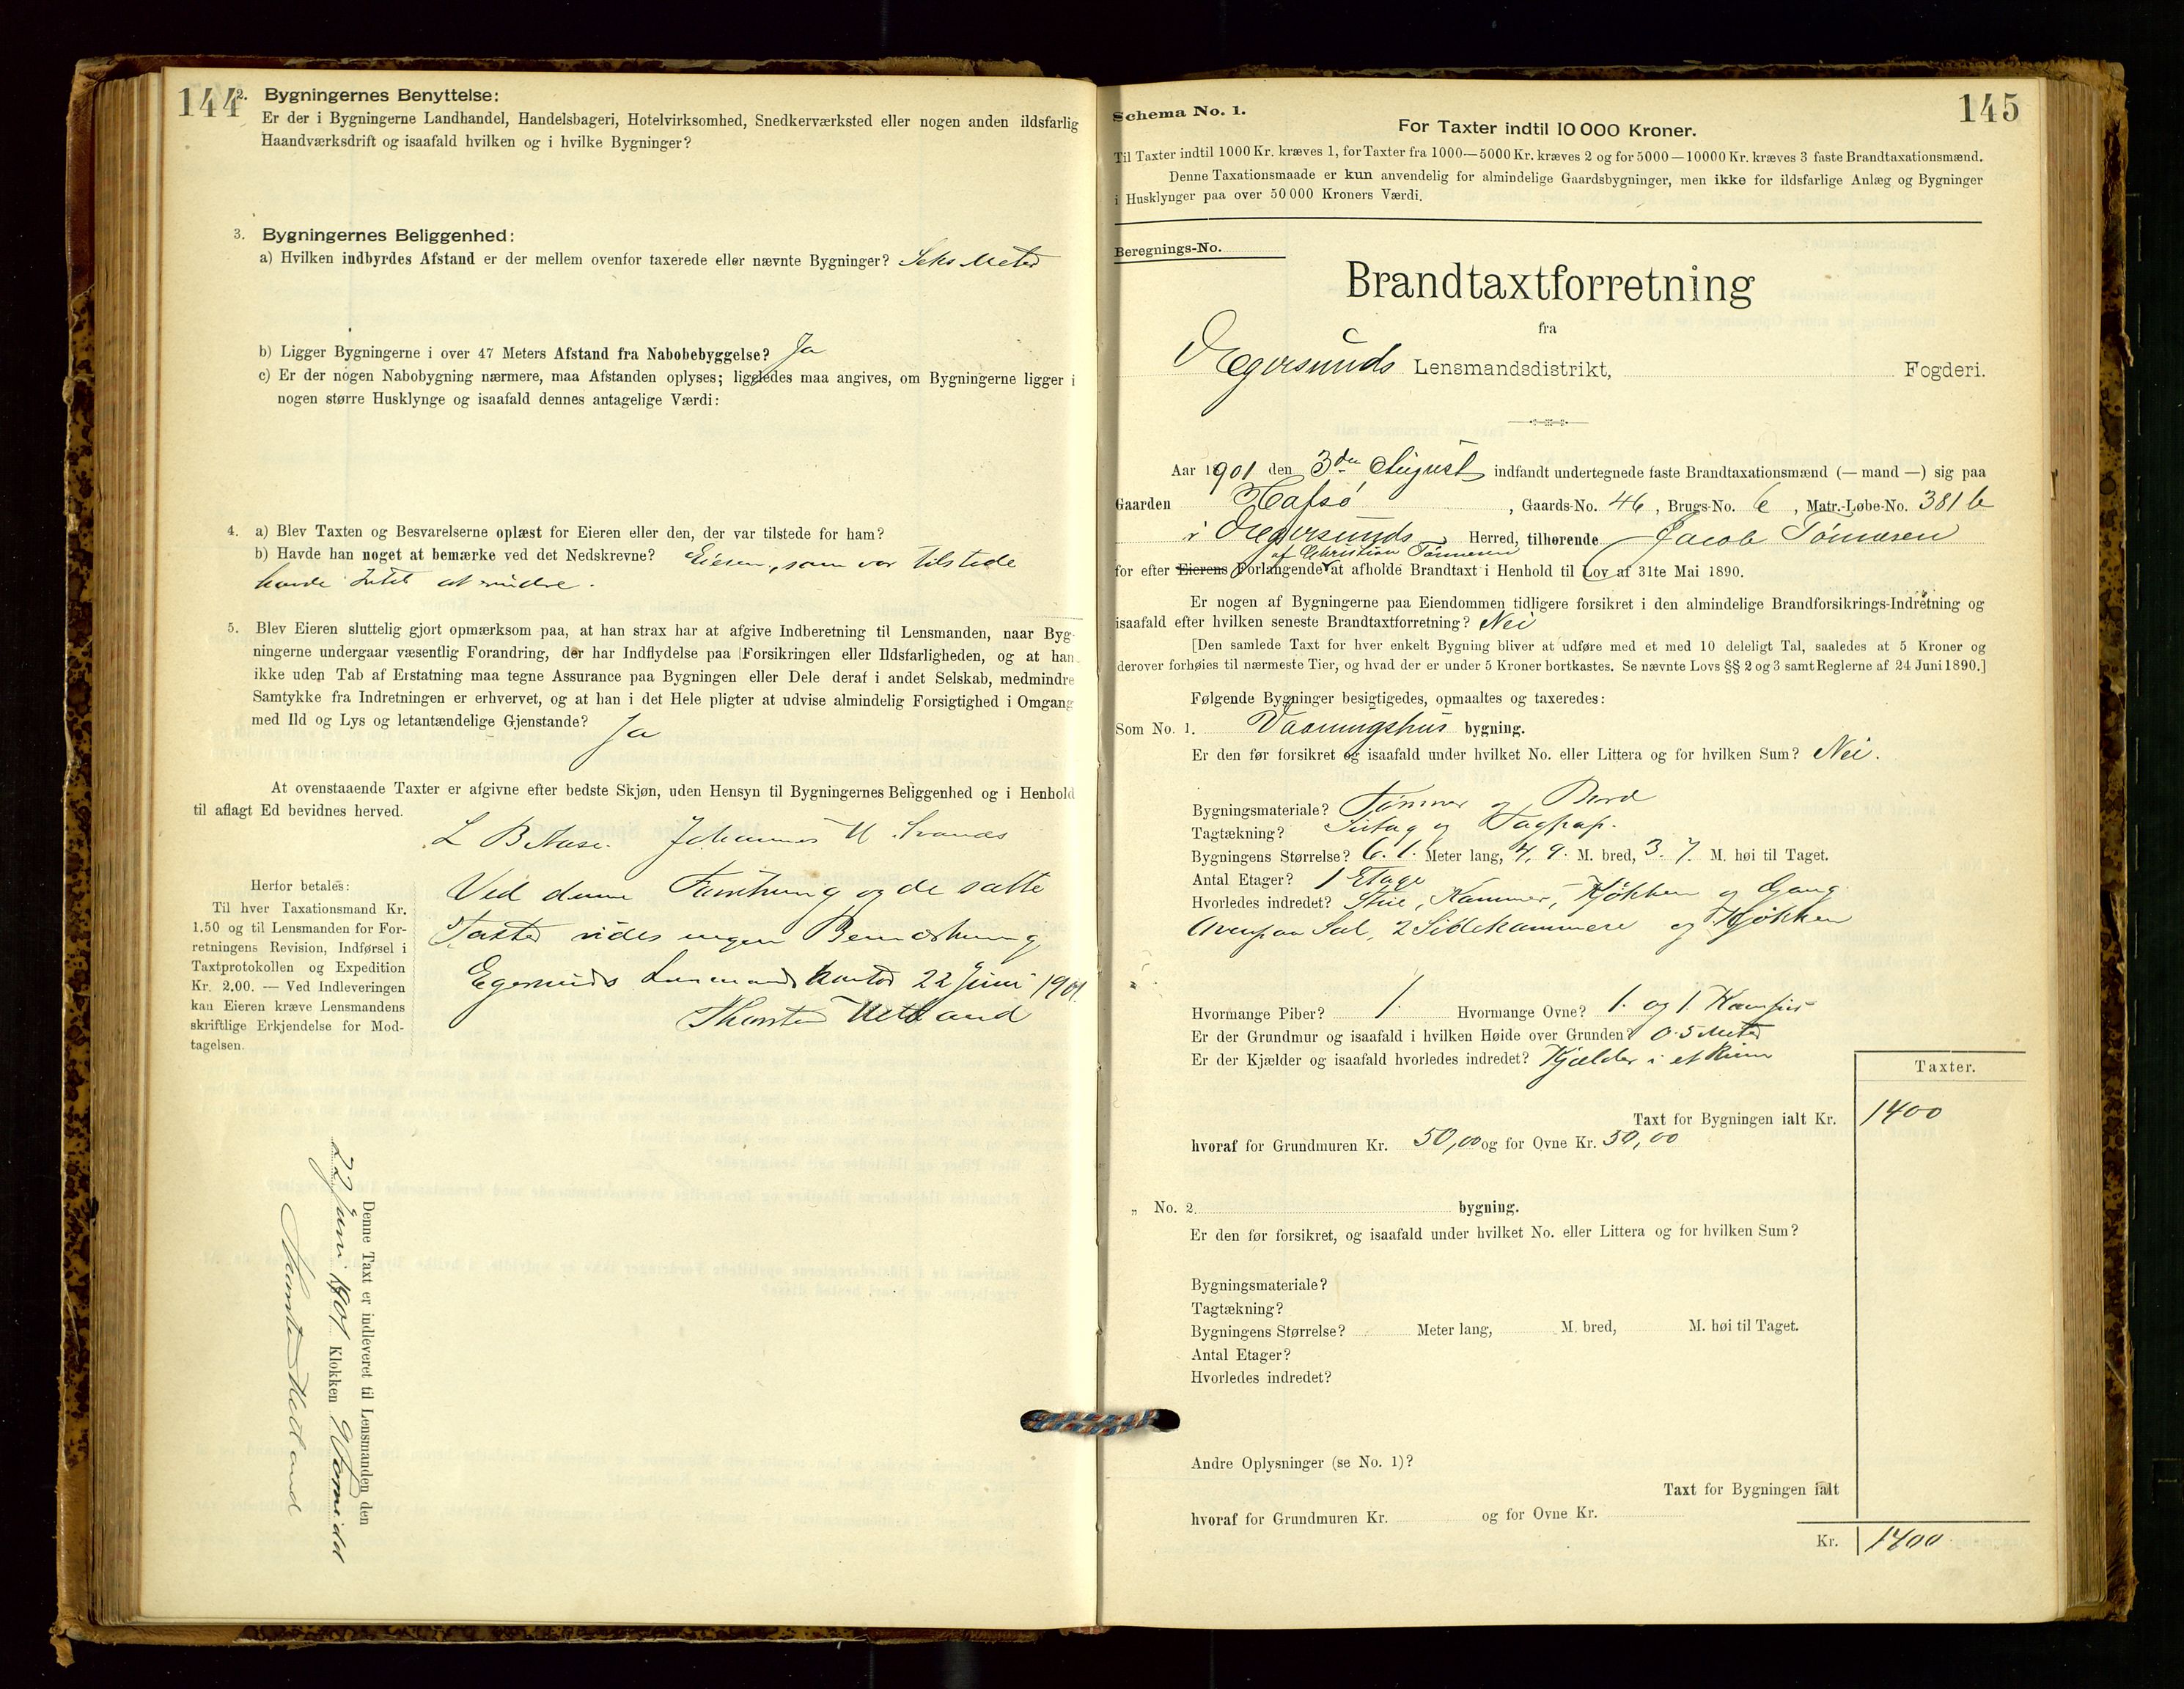 144
2. Bygningernes Benyttelse:
Er der i Bygningerne Landhandel, Handelsbageri, Hotelvirksomhed, Snedkerværksted eller nogen anden ildsfarlig
Haandværksdrift og isaafald hvilken og i hvilke Bygninger?
3. Bygningernes Beliggenhed:
a) Hvilken indbyrdes Afstand er der mellem ovenfor taxerede eller nævnte Bygninger? Seks Meter
b) Ligger Bygningerne i over 47 Meters Afstand fra Nabobebyggelse? Ja
c) Er der nogen Nabobygning nærmere, maa Afstanden oplyses; ligeledes maa angives, om Bygningerne ligger i
nogen større Husklynge og isaafald dennes antagelige Værdi:
4. a) Blev Taxten og Besvarelserne oplæst for Eieren eller den, der var tilstede for ham?
b) Havde han noget at bemærke ved det Nedskrevne? Eieren, som var tilstede
havde Intet at
5. Blev Eieren sluttelig gjort opmærksom paa, at han strax har at afgive Indberetning til Lensmanden, naar Byg-
ningerne undergaar væsentlig Forandring, der har Indflydelse paa Forsikringen eller Ildsfarligheden, og at han
ikke uden Tab af Erstatning maa tegne Assurance paa Bygningen eller Dele deraf i andet Selskab, medmindre
Samtykke fra Indretningen er erhvervet, og at han i det Hele pligter at udvise almindelig Forsigtighed i Omgang
med Ild og Lys og letantændelige Gjenstande? Ja
At ovenstaaende Taxter er afgivne efter bedste Skjøn, uden Hensyn til Bygningernes Beliggenhed og i Henhold
til aflagt Ed bevidnes herved.
L B Aase. Johannes M.
Herfor betales:
Til hver Taxationsmand Kr.
1.50 og til Lensmanden for For-
retningens Revision, Indførsel i
Taxtprotokollen og Expedition
Kr. 2.00. — Ved Indleveringen
kan Eieren kræve Lensmandens
skriftlige Erkjendelse for Mod-
tagelsen.
Ved denne Forretning og de satte
Taxter vides ingen Bemærkning
Egersunds Lensmandskontor 22 Juni 1901
Thorsten Hetland
Denne Taxt er indleveret til Lensmanden den
22 Juni 1901 Klokken 9 Formidd
Thorsten Hetland
145
Schema No. 1.
For Taxter indtil 10 000 Kroner.
Til Taxter indtil 1000 Kr. kræves 1, for Taxter fra 1000—5000 Kr. kræves 2 og for 5000—10000 Kr. kræves 3 faste Brandtaxationsmænd.
Denne Taxationsmaade er kun anvendelig for almindelige Gaardsbygninger, men ikke for ildsfarlige Anlæg og Bygninger
i Husklynger paa over 50 000 Kroners Værdi.
Beregnings-No.
Brandtaxtforretning
fra
Egersunds Lensmandsdistrikt, Fogderi.
Aar 1901 den 3die August indfandt undertegnede faste Brandtaxationsmænd (— mand —) sig paa
Gaarden Hafsø, Gaards-No. 46, Brugs-No. 6, Matr.-Løbe-No. 381 b
i Egersunds Herred, tilhørende Jacob Tønnesen
af Christian Tønnesen
for efter Eierens Forlangende at afholde Brandtaxt i Henhold til Lov af 31te Mai 1890.
Er nogen af Bygningerne paa Eiendommen tidligere forsikret i den almindelige Brandforsikrings-Indretning og
isaafald efter hvilken seneste Brandtaxtforretning? Nei
[Den samlede Taxt for hver enkelt Bygning bliver at udføre med et med 10 deleligt Tal, saaledes at 5 Kroner og
derover forhøies til nærmeste Tier, og hvad der er under 5 Kroner bortkastes. Se nævnte Lovs §§ 2 og 3 samt Reglerne af 24 Juni 1890.]
Følgende Bygninger besigtigedes, opmaaltes og taxeredes:
Som No. 1. Vaaningshus bygning.
Er den før forsikret og isaafald under hvilket No. eller Littera og for hvilken Sum? Nei.
Bygningsmateriale? Tømmer og Bord
Tagtækning? og Tagpap.
Bygningens Størrelse? 6.1. Meter lang, 4,9. M. bred, 3.7. M. høi til Taget.
Antal Etager? 1 Etage
Hvorledes indredet? Stue, Kammer, Kjøkken og Gang
Ovenpaa Sal, 2 Sidekammere og Kjøkken
Hvormange Piber? 1. Hvormange Ovne? 1. og 1. Komfur
Er der Grundmur og isaafald i hvilken Høide over Grunden? 0.5 Meter
Er der Kjælder og isaafald hvorledes indredet? Kjelder i et Rum
Taxter.
Taxt for Bygningen ialt Kr. 1400
hvoraf for Grundmuren Kr. 50,00 og for Ovne Kr. 50,00
„ No. 2 bygning.
Er den før forsikret, og isaafald under hvilket No. eller Littera og for hvilken Sum?
Bygningsmateriale?
Tagtækning?
Bygningens Størrelse? Meter lang, M. bred, M. høi til Taget.
Antal Etager?
Hvorledes indredet?
Andre Oplysninger (se No. 1)?
Taxt for Bygningen ialt
hvoraf for Grundmuren Kr. og for Ovne Kr.
Kr. 1400